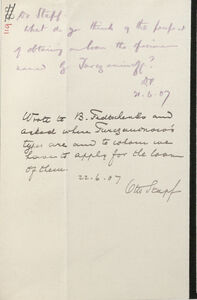 116
Dr Stapf.
What do you think of the prospect
of obtaining on loan the specimens
named by Turczaninoff?
21.6.07
Wrote to B. Fedtschenko and
asked where Turczaninow's
types are and to whom we
have to apply for the loan
of them.
22.6.07
Otto Stapf